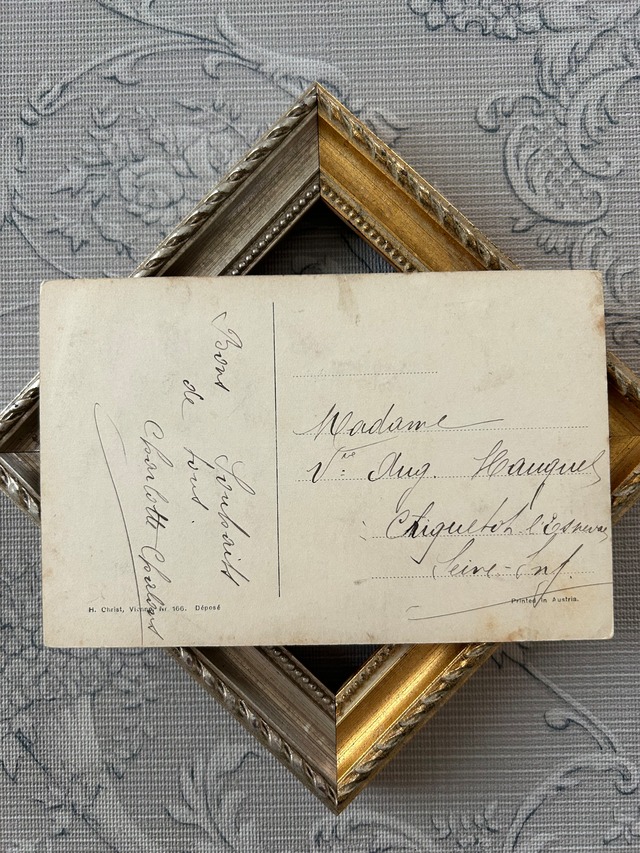 Bons Souhaits
de tous.
Charlotte
Madame
Vve Aug. Hauguel
Criquetot l'Esneval
Seine-Inf.
H. Christ, Vienne Nr. 166. Déposé
Printed in Austria.